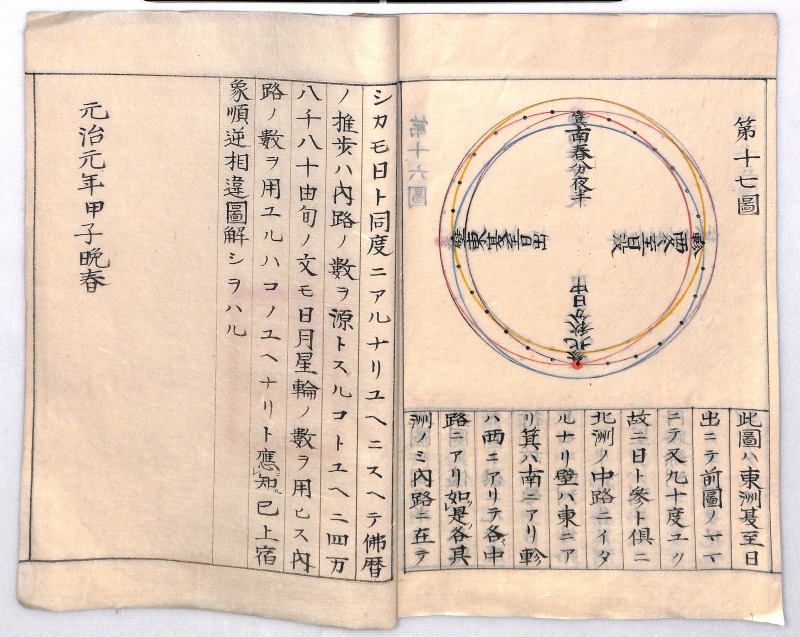 第十七圖
箕 南春分夜半
軫 西冬至日没
壁 東夏至日出
参 北秋分日中
此圖ハ東洲夏至日
出ニテ前圖ノママ
ニテ又九十度ユツ
故ニ日ト參ト倶ニ
北洲ノ中路ニイタ
ルナリ壁ハ東ニア
リ箕ハ南ニアリ軫
ハ西ニアリテ各中
路ニアリ如是各其
洲ノミ内路ニ在テ
シカモ日ト同度ニアルナリユヘニスヘテ佛暦
ノ推歩ハ内路ノ數ヲ源トスルコトユヘニ四万
八千八十由旬ノ文モ日月星輪ノ數ヲ用ヒス内
路ノ數ヲ用ユルハコノユヘナリト應知已上宿
象順逆相違圖解シヲハル
元治元年甲子晩春